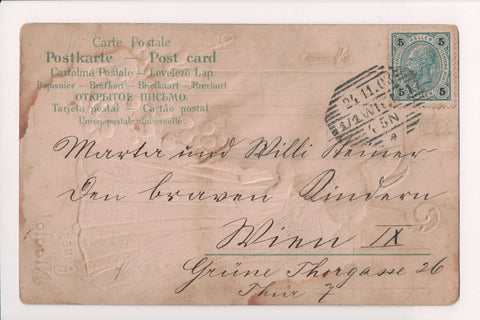 Carte Postale
Postkarte — Post card
Cartolina Postale — Levelező Lap
Dopisnice — Brefkort — Briefkaart — Brevkort
ОТКРЫТОЕ ПИСЬМО.
Tarjeta postal — Cartão postal
Union postale universelle.
5 5
5 5
24.11.0
1/1 WIEN
4-5N
Marta und Willi Steiner
Den braven Kindern
Wien IX
Grüne Thorgasse 26
Thür 7